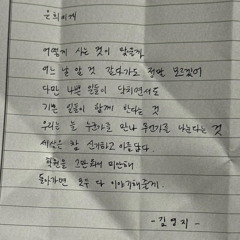 은희에게
어떻게 사는 것이 맞을까
어느 날 알 것 같다가도 정말 모르겠어
다만 나쁜 일들이 닥치면서도
기쁜 일들이 함께 한다는 것
우리는 늘 누군가를 만나 무언가를 나눈다는 것
세상은 참 신기하고 아름답다
학원을 그만둬서 미안해
돌아가면 모두 다 이야기해줄게
- 김영지 -